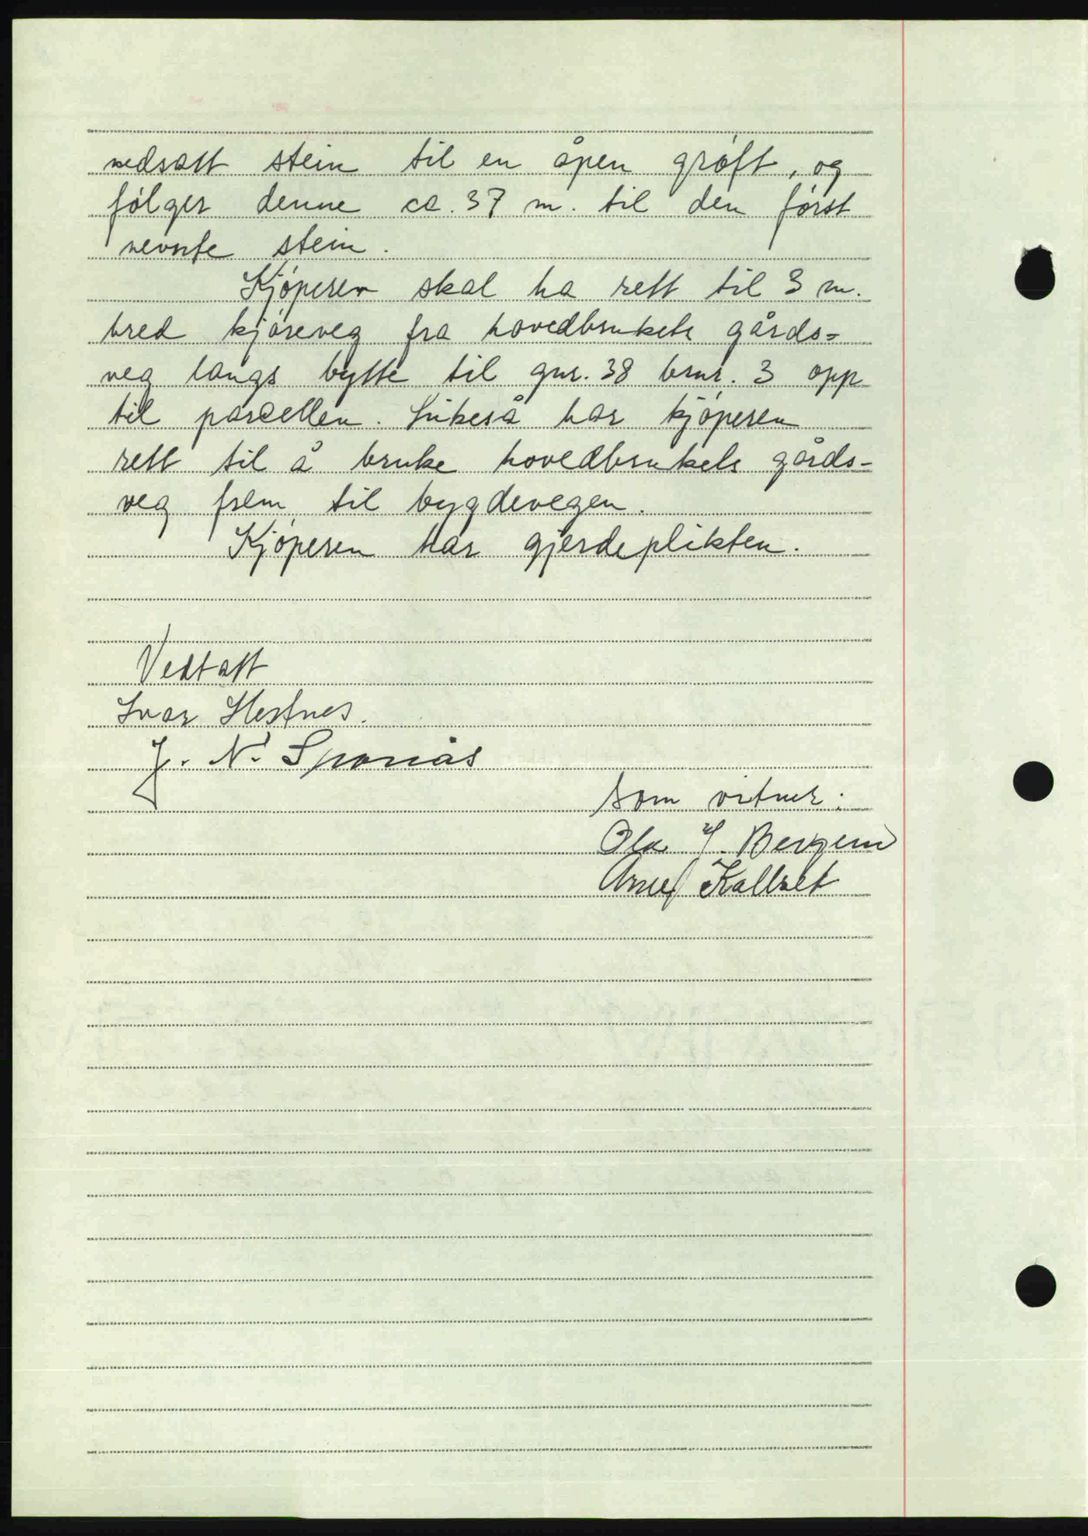 nedsatt stein til en åpen grøft, og
følger denne ca. 37 m. til den först
nevnte stein.
Kjøperen skal ha rett til 3 m.
bred kjøreveg fra hovedbrukets gårds=
veg langs bytte til gnr. 38 brnr. 3 opp
til parcellen. Likeså har kjøperen
rett til å bruke hovedbrukets gårds-
veg frem til bygdevegen.
Kjøperen har gjerdeplikten.
Vedtatt
Ivar Hestnes.
J. N.
Som vitner:
Ola J.
Arne Kallset